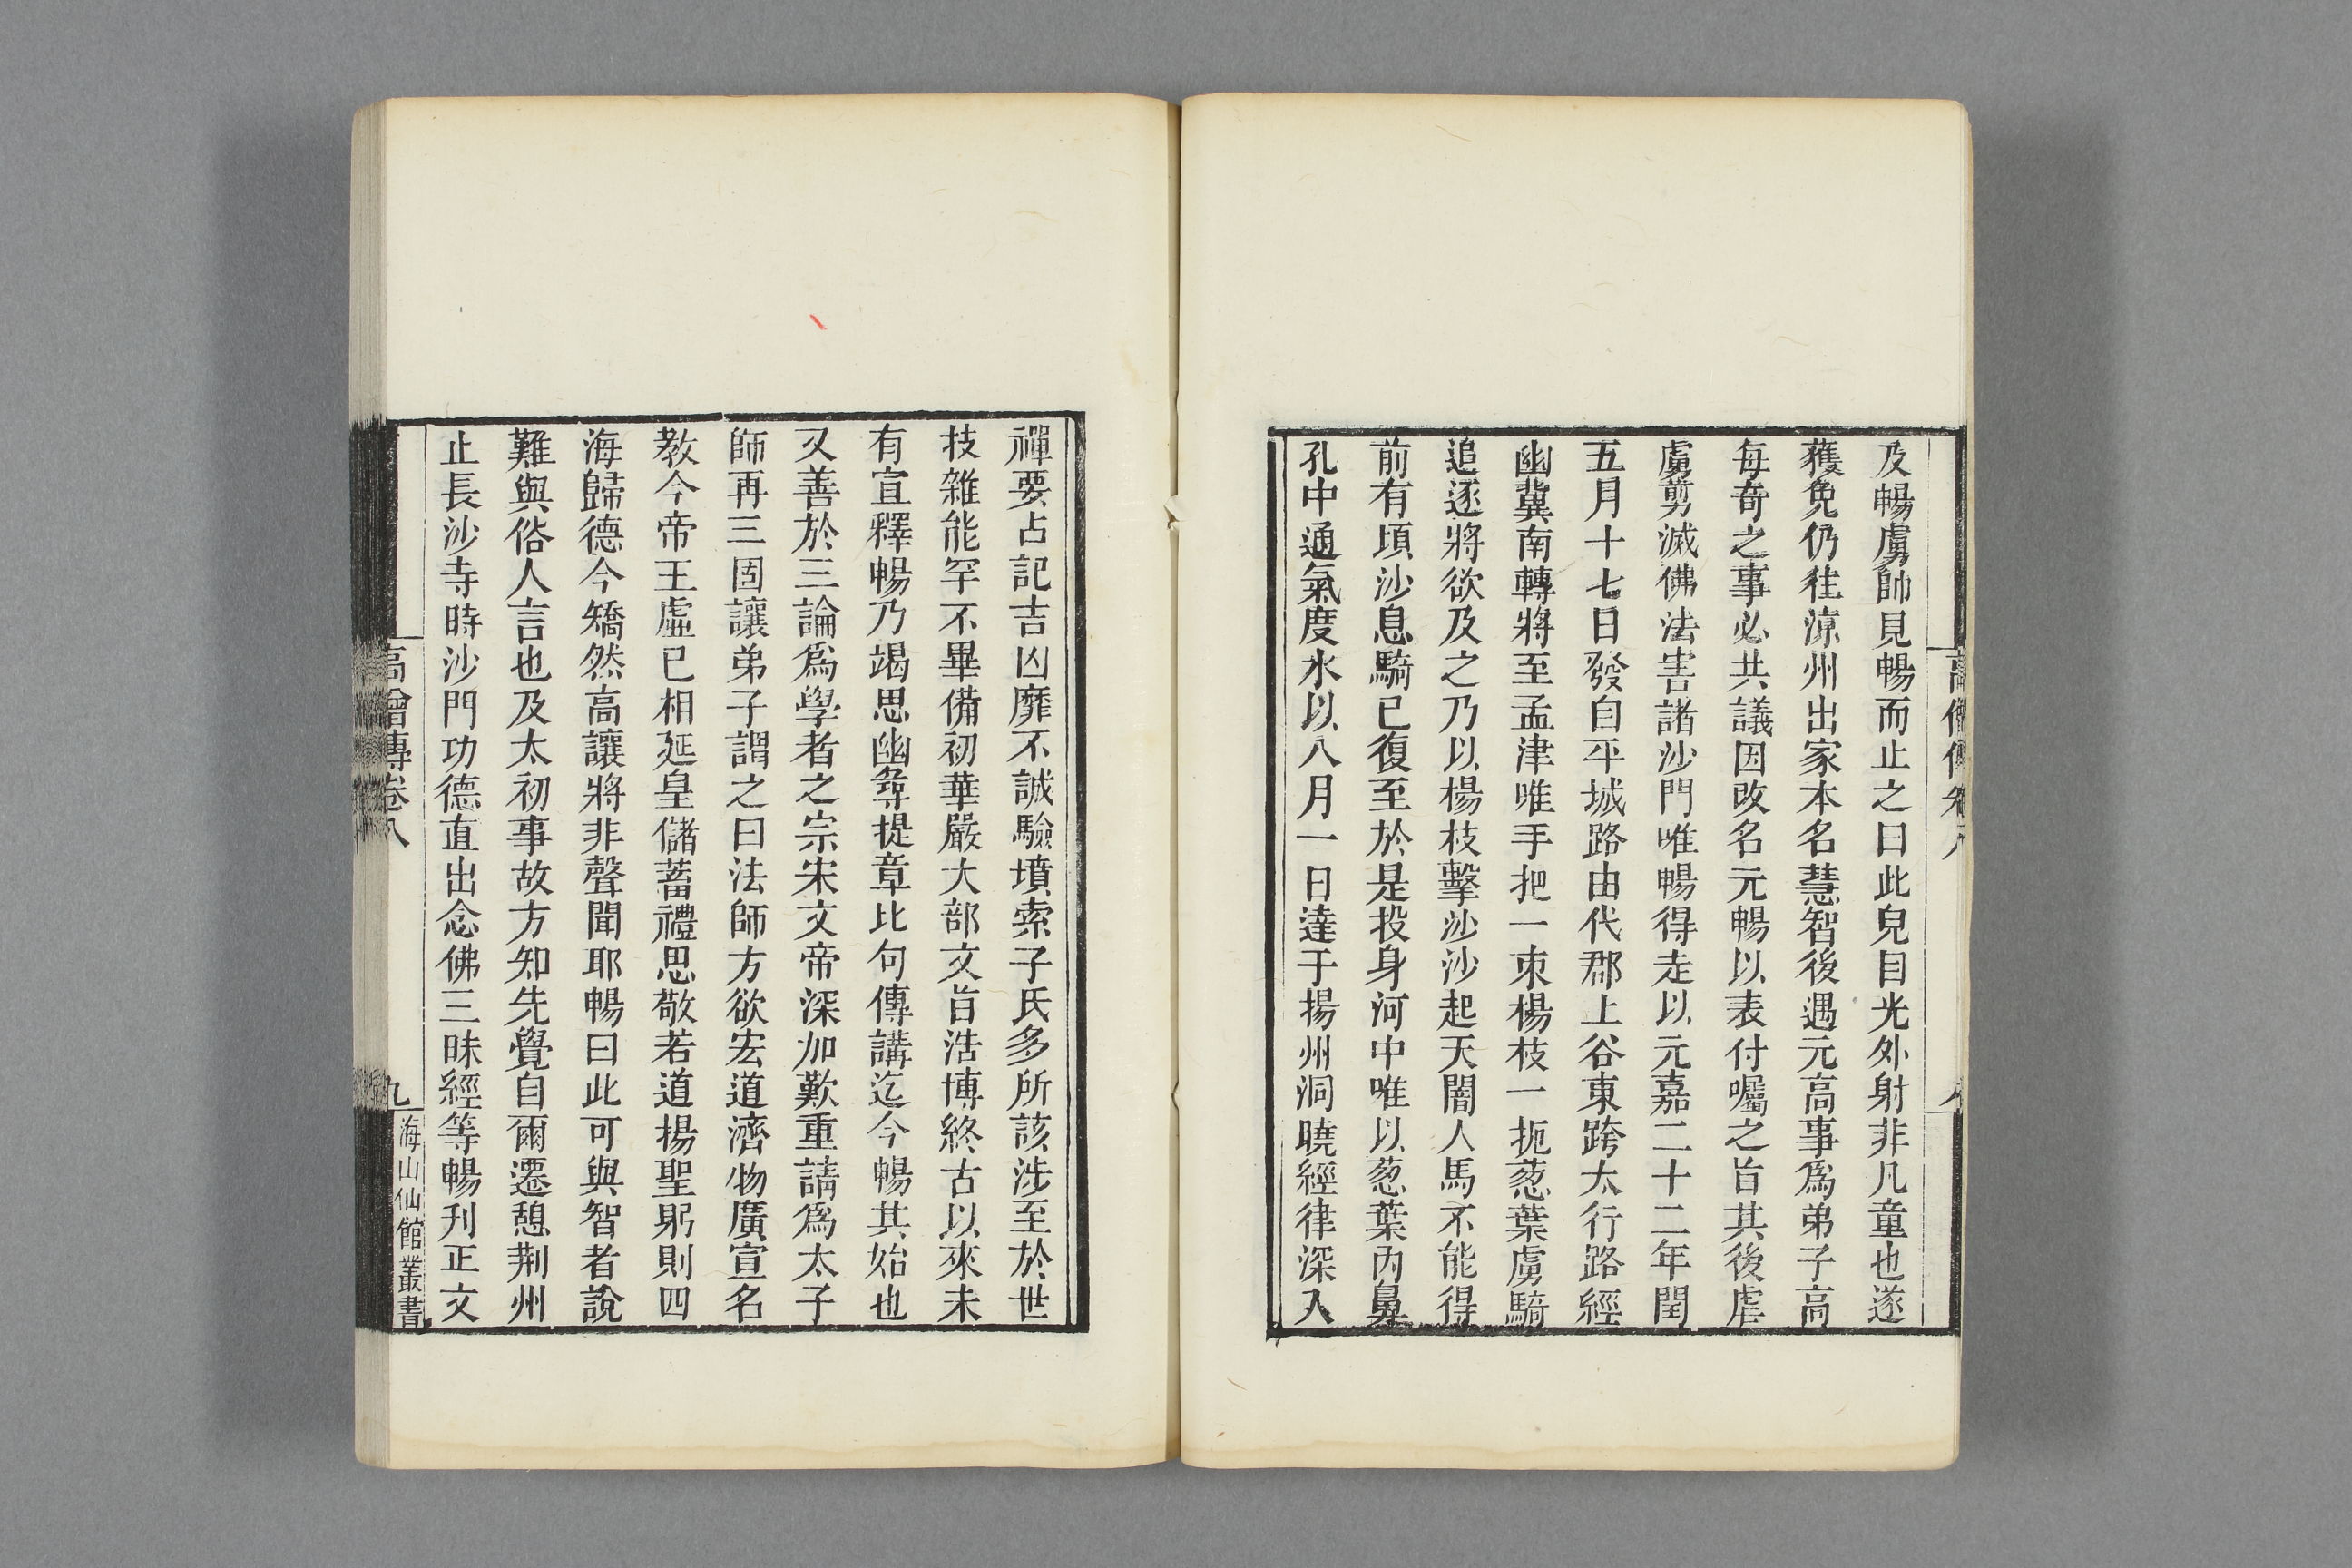 及暢虜帥見暢而止之曰此兒目光外射非凡童也遂
獲免仍往涼州出家本名慧智後遇元高事爲弟子高
每奇之事必共議因改名元暢以表付囑之旨其後虐
虜剪滅佛法害諸沙門唯暢得走以元嘉二十二年閏
五月十七日發自平城路由代郡上谷東跨太行路經
幽冀南轉將至孟津唯手把一束楊枝一扼葱葉虜騎
追逐將欲及之乃以楊枝擊沙沙起天闇人馬不能得
前有頃沙息騎已復至於是投身河中唯以葱葉內鼻
孔中通氣度水以八月一日達于揚州洞曉經律深入
禪要占記吉凶靡不誠驗墳索子氏多所該涉至於世
技雜能罕不畢備初華嚴大部文旨浩博終古以來未
有宣釋暢乃竭思幽尋提章比句傳講迄今暢其始也
又善於三論爲學者之宗宋文帝深加歎重請爲太子
師再三固讓弟子謂之曰法師方欲宏道濟物廣宣名
教今帝王虛已相延皇儲蓄禮思敬若道揚聖躬則四
海歸德今矯然高讓將非聲聞耶暢曰此可與智者說
難與俗人言也及太初事故方知先覺自爾遷憩荆州
止長沙寺時沙門功德直出念佛三昧經等暢刋正文
高僧傳卷八
九
海山仙館叢書